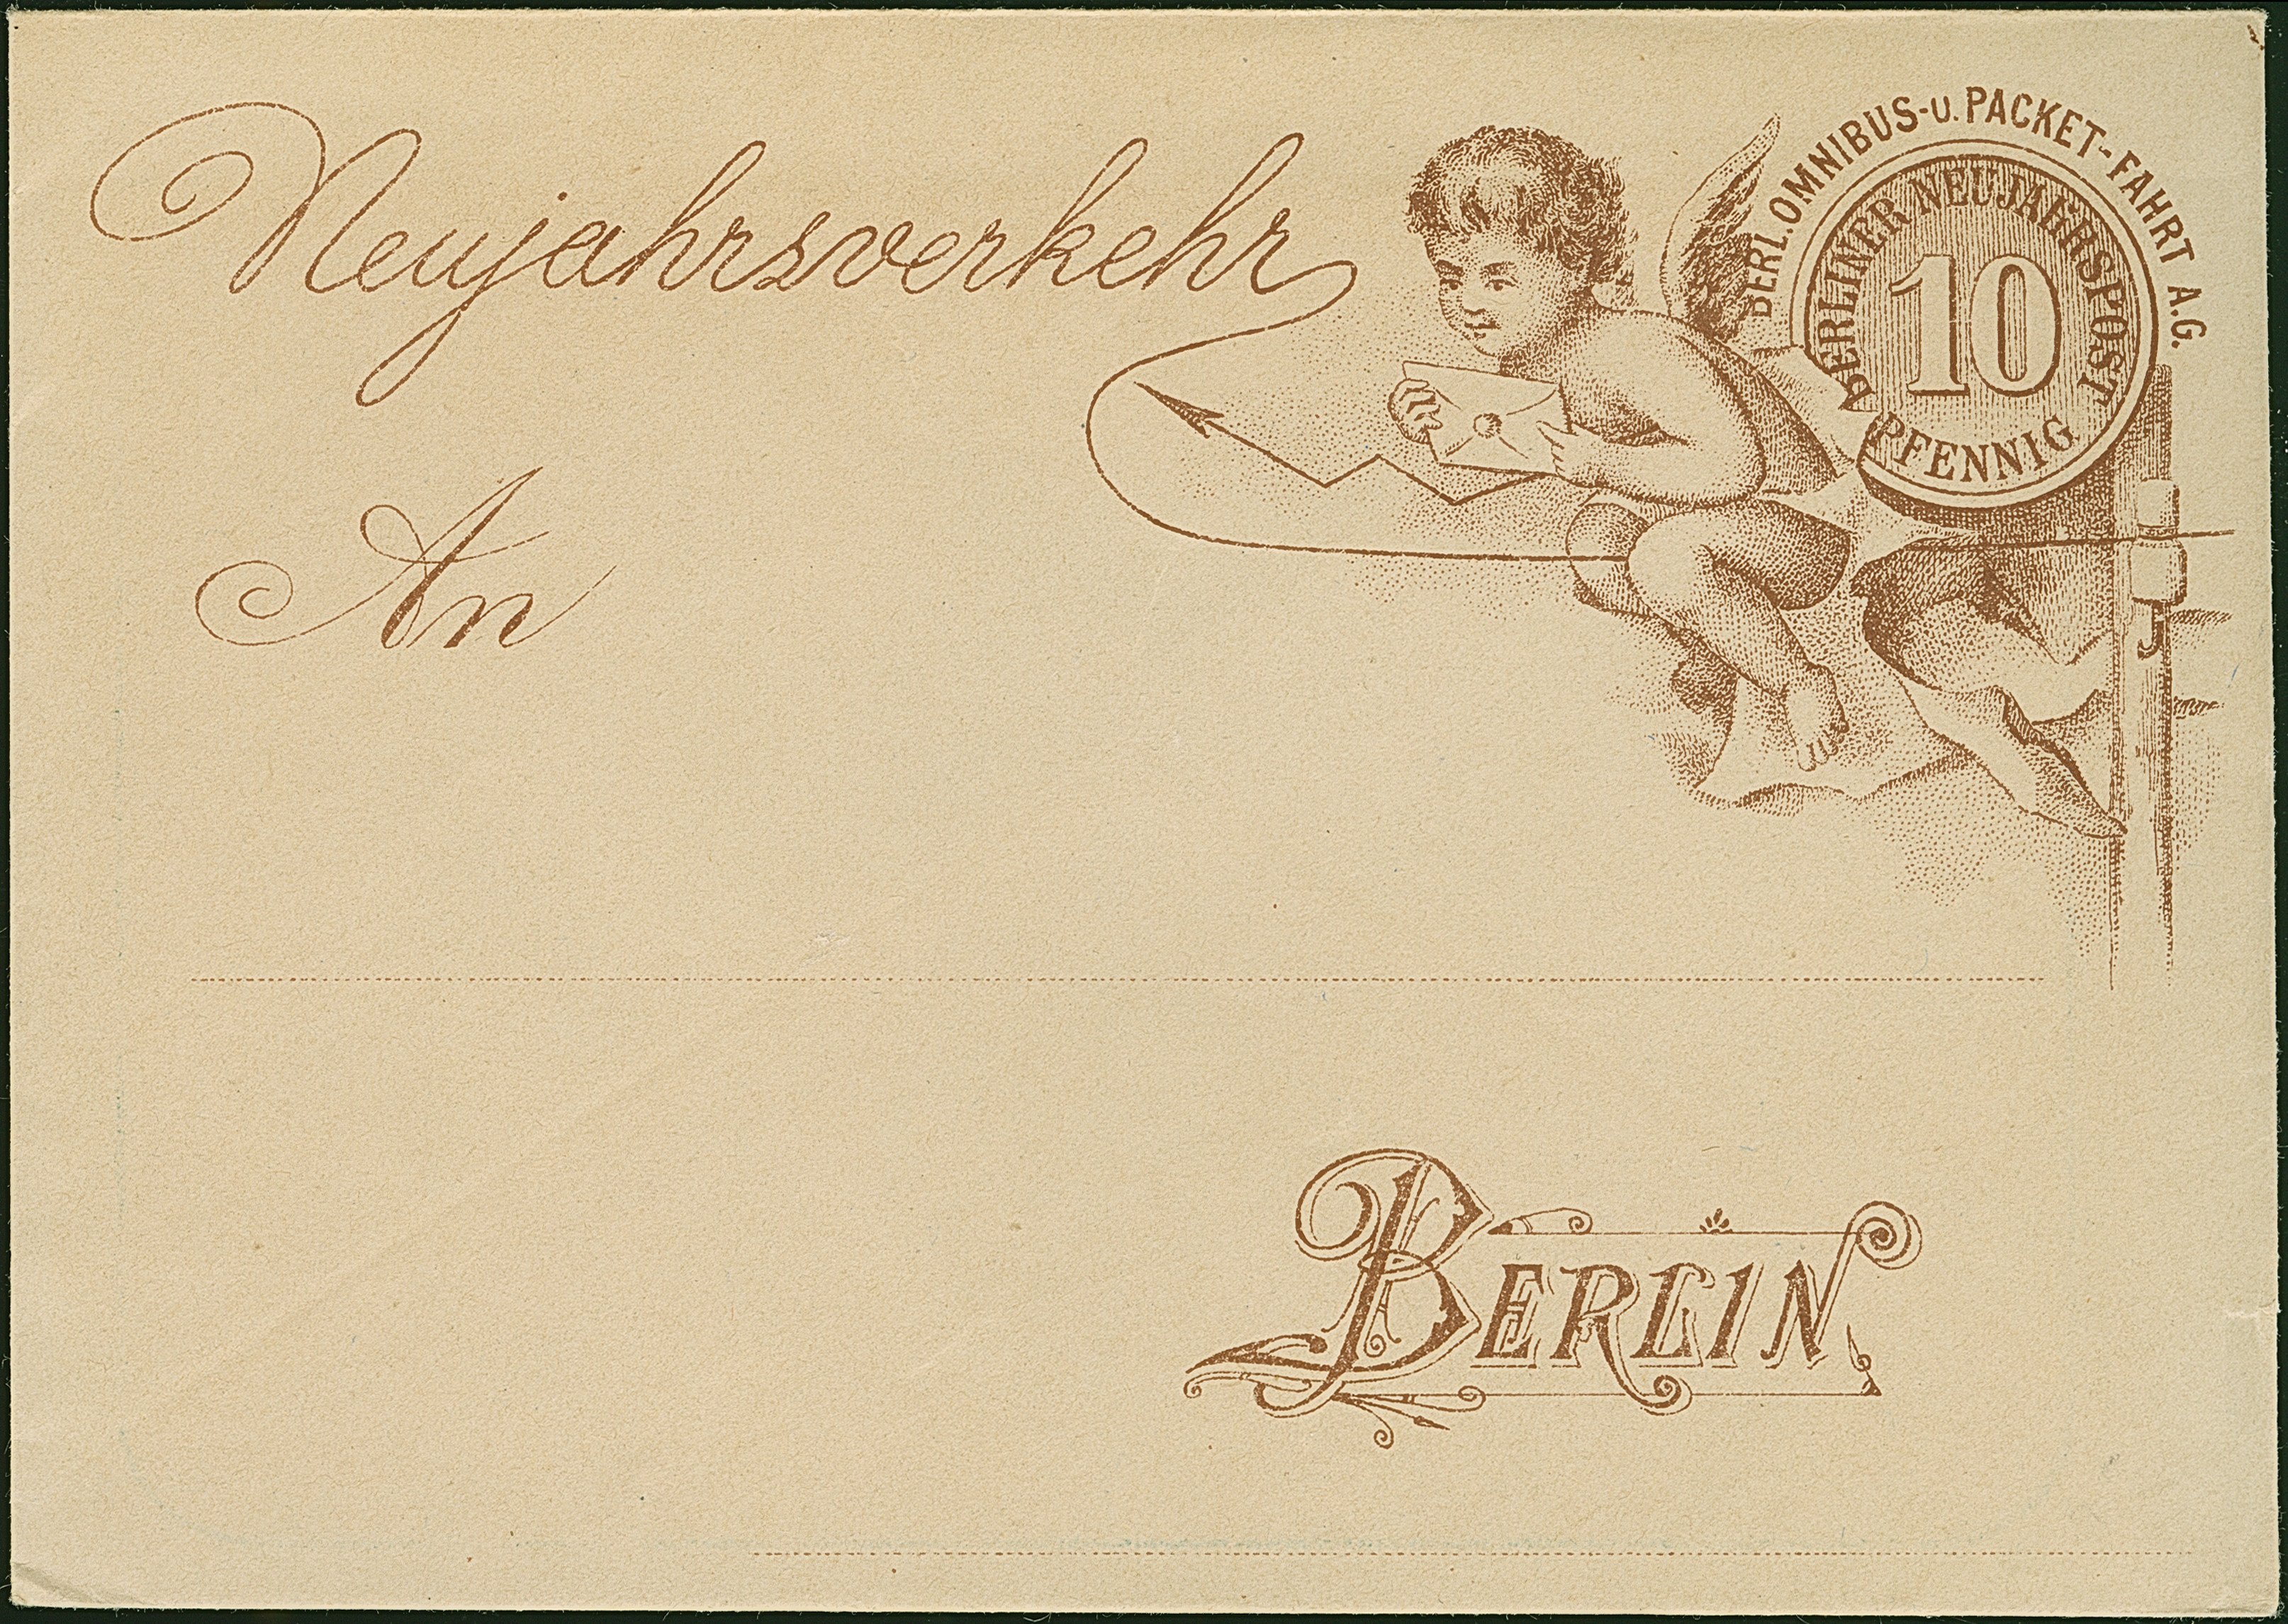 Neujahrsverkehr
BERL. OMNIBUS-U. PACKET-FAHRT A.G.
BERLINER NEUJAHRSPOST
10
PFENNIG
An
BERLIN